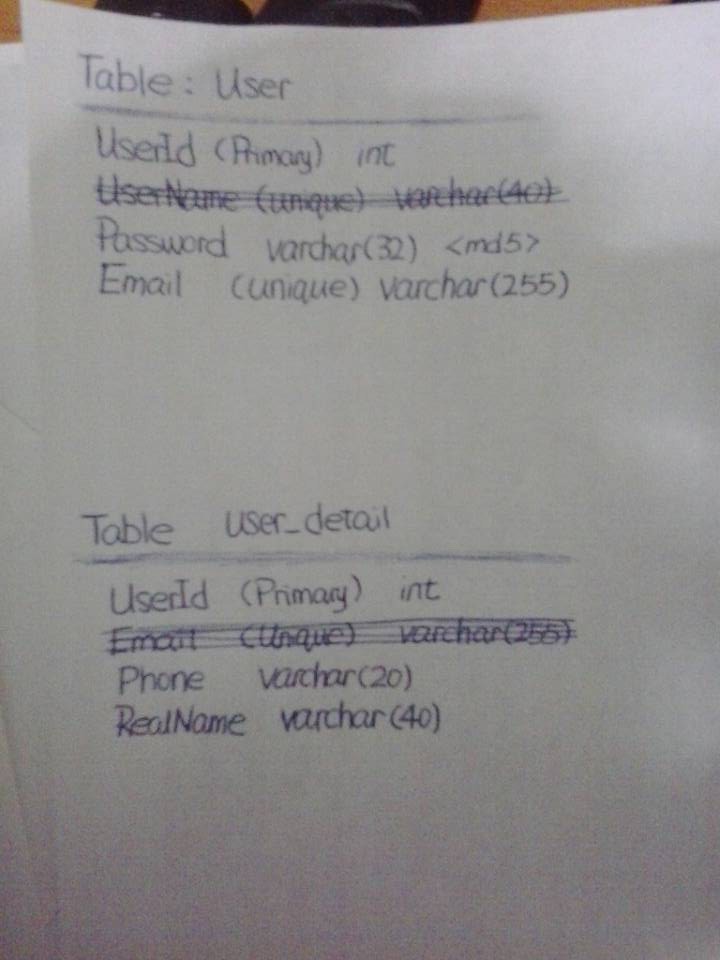 Table : User
UserId (Primary) int
UserName (unique) varchar(40)
Password varchar(32) <md5>
Email (unique) varchar(255)
Table user_detail
UserId (Primary) int
Email (Unique) varchar(255)
Phone varchar(20)
RealName varchar(40)